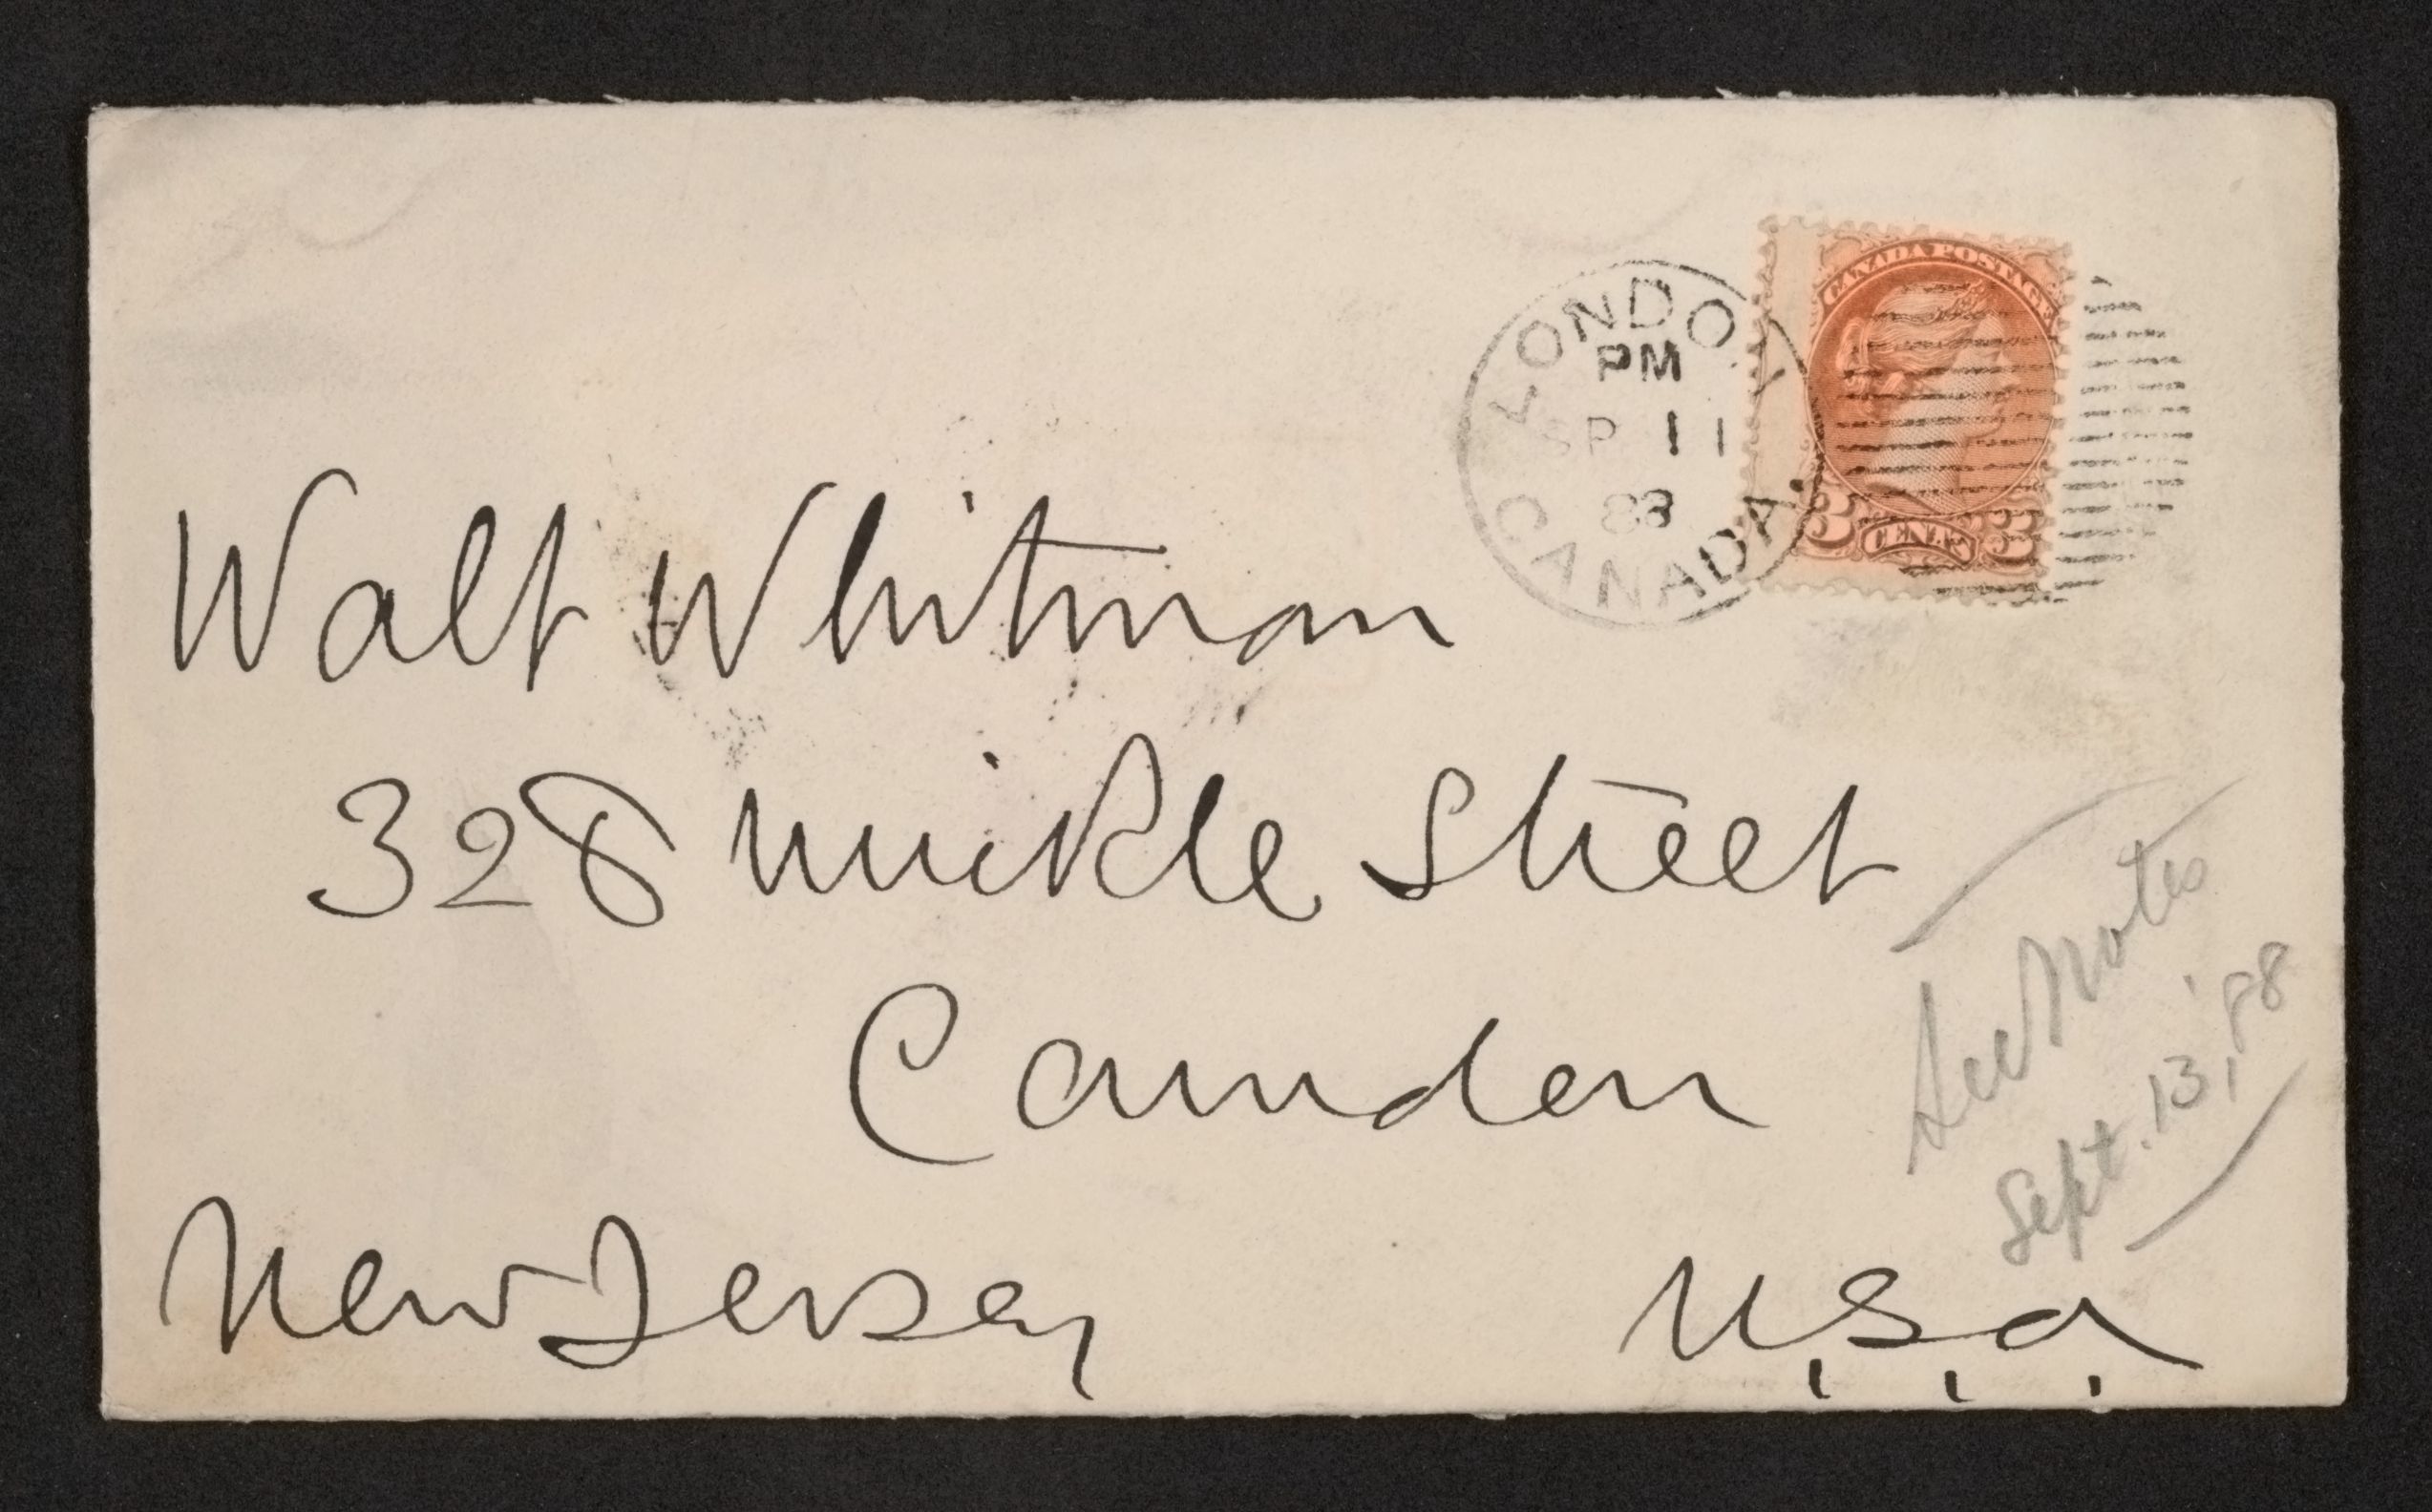 LONDON
PM
SP 11
88
CANADA.
CANADA POSTAGE
3 CENTS 3
Walt Whitman
328 Mickle Street
Camden
New Jersey
U.S.A.
See Notes
Sept. 13, '88